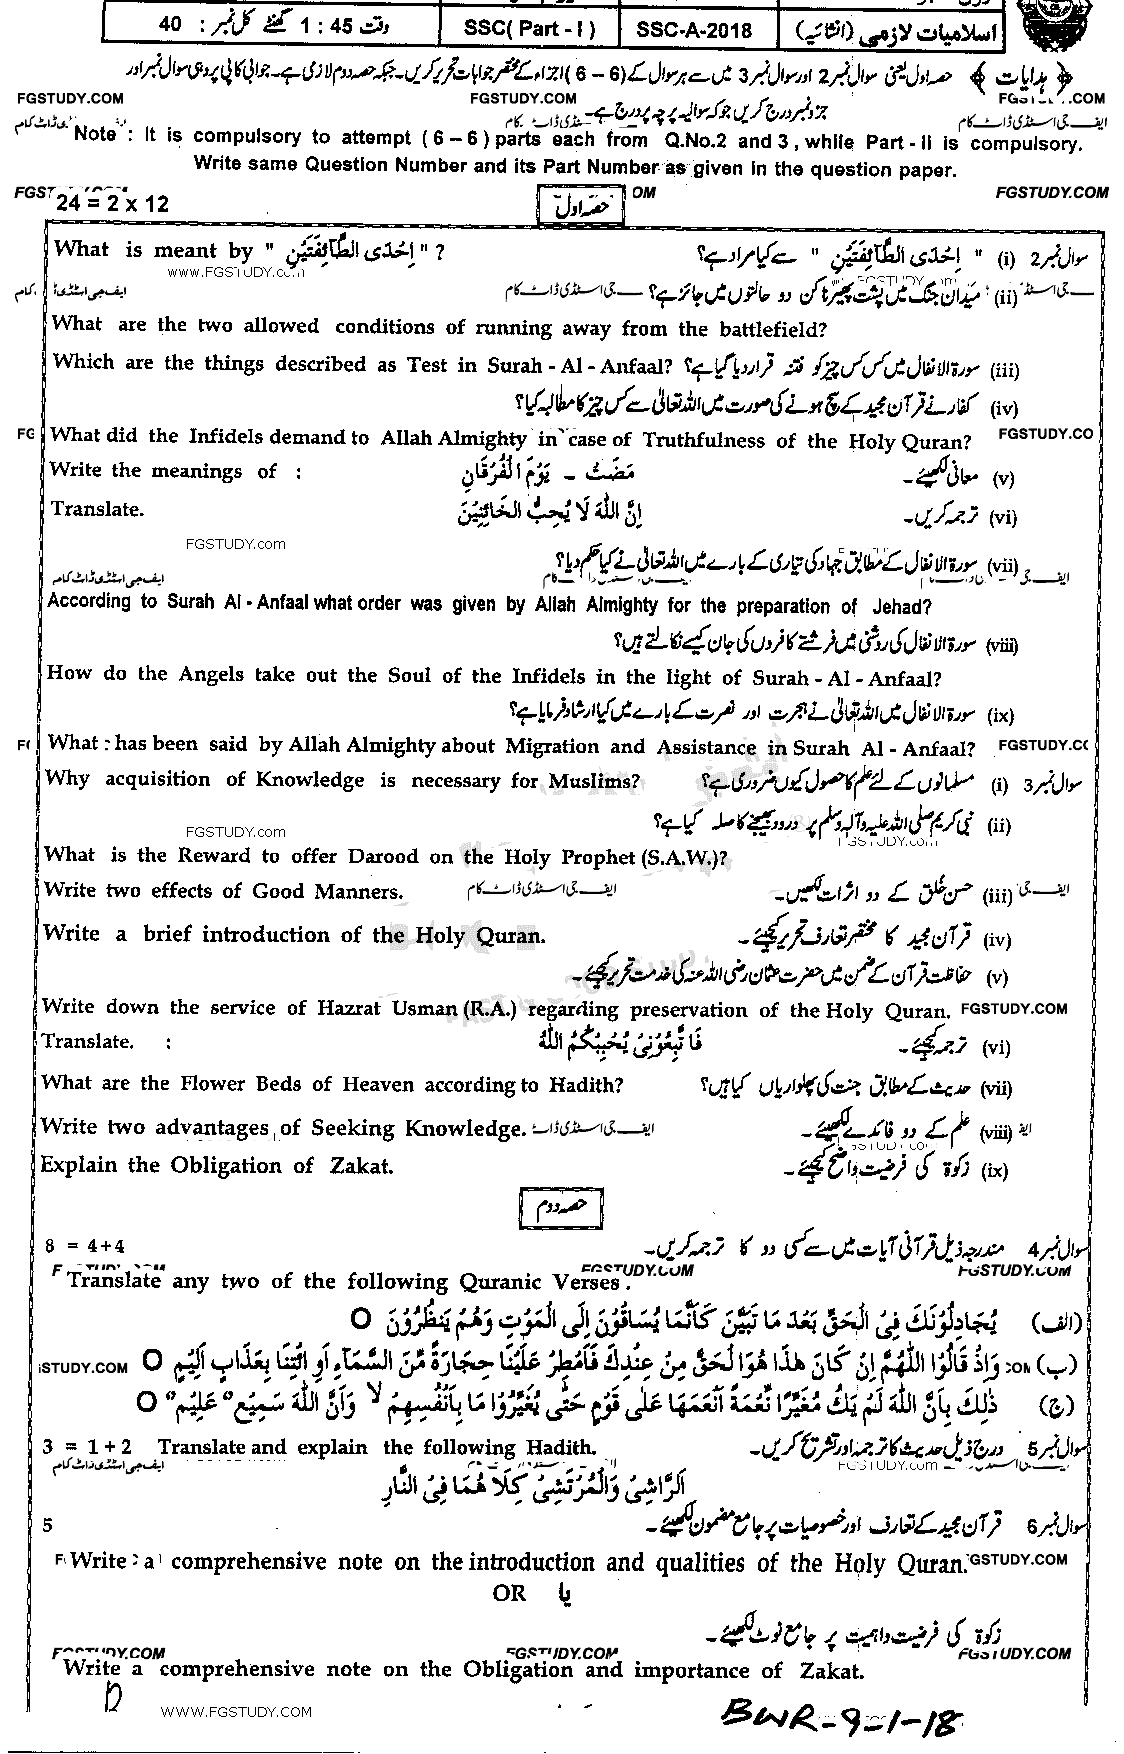 اسلامیات لازمی (انشائیہ) SSC-A-2018 SSC( Part - I ) وقت 45 : 1 گھنٹے کل نمبر : 40
﴿ ہدایات ﴾ حصہ اول یعنی سوال نمبر 2 اور سوال نمبر 3 میں سے ہر سوال کے (6 – 6) اجزاء کے مختصر جوابات تحریر کریں۔ جبکہ حصہ دوم لازمی ہے۔ جوابی کاپی پر وہی سوال نمبر اور
FGSTUDY.COM FGSTUDY.COM
جزو نمبر درج کریں جو کہ سوالیہ پرچہ پر درج ہے۔
Note : It is compulsory to attempt ( 6 – 6 ) parts each from Q.No.2 and 3 , while Part - II is compulsory.
Write same Question Number and its Part Number as given in the question paper.
24 = 2 x 12 حصہ اول FGSTUDY.COM
What is meant by " اِحْدَی الطَّآئِفَتَیْنِ " ? سوال نمبر 2 (i) " اِحْدَی الطَّآئِفَتَیْنِ " سے کیا مراد ہے؟
www.FGSTUDY.com
(ii) میدان جنگ میں پشت پھیرنا کن دو حالتوں میں جائز ہے؟
What are the two allowed conditions of running away from the battlefield?
Which are the things described as Test in Surah - Al - Anfaal? (iii) سورۃ الانفال میں کس کس چیز کو فتنہ قرار دیا گیا ہے؟
(iv) کفار نے قرآن مجید کے سچ ہونے کی صورت میں اللہ تعالیٰ سے کس چیز کا مطالبہ کیا؟
What did the Infidels demand to Allah Almighty in case of Truthfulness of the Holy Quran? FGSTUDY.CO
Write the meanings of : مَضَتْ ۔ یَوْمَ الْفُرْقَانِ (v) معانی لکھیے۔
Translate. اِنَّ اللّٰهَ لَا یُحِبُّ الْخَآئِنِیْنَ (vi) ترجمہ کریں۔
FGSTUDY.com
(vii) سورۃ الانفال کے مطابق جہاد کی تیاری کے بارے میں اللہ تعالیٰ نے کیا حکم دیا؟
ایف جی اسٹڈی ڈاٹ کام
According to Surah Al - Anfaal what order was given by Allah Almighty for the preparation of Jehad?
(viii) سورۃ الانفال کی روشنی میں فرشتے کافروں کی جان کیسے نکالتے ہیں؟
How do the Angels take out the Soul of the Infidels in the light of Surah - Al - Anfaal?
(ix) سورۃ الانفال میں اللہ تعالیٰ نے ہجرت اور نصرت کے بارے میں کیا ارشاد فرمایا ہے؟
What : has been said by Allah Almighty about Migration and Assistance in Surah Al - Anfaal? FGSTUDY.CO
Why acquisition of Knowledge is necessary for Muslims? سوال نمبر 3 (i) مسلمانوں کے لئے علم کا حصول کیوں ضروری ہے؟
FGSTUDY.com (ii) نبی کریم صلی اللہ علیہ وآلہ وسلم پر درود بھیجنے کا صلہ کیا ہے؟
What is the Reward to offer Darood on the Holy Prophet (S.A.W.)?
Write two effects of Good Manners. ایف جی اسٹڈی ڈاٹ کام (iii) حسن خُلق کے دو اثرات لکھیں۔
Write a brief introduction of the Holy Quran. (iv) قرآن مجید کا مختصر تعارف تحریر کیجئے۔
(v) حفاظت قرآن کے ضمن میں حضرت عثمان رضی اللہ عنہ کی خدمت تحریر کیجئے۔
Write down the service of Hazrat Usman (R.A.) regarding preservation of the Holy Quran. FGSTUDY.COM
Translate. : فَاتَّبِعُوْنِیْ یُحْبِبْكُمُ اللّٰهُ (vi) ترجمہ کیجئے۔
What are the Flower Beds of Heaven according to Hadith? (vii) حدیث کے مطابق جنت کی پھلواریاں کیا ہیں؟
Write two advantages of Seeking Knowledge. (viii) علم کے دو فائدے لکھیے۔
Explain the Obligation of Zakat. (ix) زکوٰۃ کی فرضیت واضح کیجئے۔
حصہ دوم
8 = 4+4 سوال نمبر 4 مندرجہ ذیل قرآنی آیات میں سے کسی دو کا ترجمہ کریں۔
Translate any two of the following Quranic Verses . FGSTUDY.COM FGSTUDY.COM
(الف) یُجَادِلُوْنَكَ فِی الْحَقِّ بَعْدَ مَا تَبَیَّنَ كَاَنَّمَا یُسَاقُوْنَ اِلَی الْمَوْتِ وَهُمْ یَنْظُرُوْنَ O
(ب) وَاِذْ قَالُوا اللّٰهُمَّ اِنْ كَانَ هٰذَا هُوَا لْحَقَّ مِنْ عِنْدِكَ فَاَمْطِرْ عَلَیْنَا حِجَارَةً مِّنَ السَّمَآءِ اَوِ ائْتِنَا بِعَذَابٍ اَلِیْمٍ O
(ج) ذٰلِكَ بِاَنَّ اللّٰهَ لَمْ یَكُ مُغَیِّرًا نِّعْمَةً اَنْعَمَهَا عَلٰی قَوْمٍ حَتّٰی یُغَیِّرُوْا مَا بِاَنْفُسِهِمْ لا وَاَنَّ اللّٰهَ سَمِیْعٌ عَلِیْمٌ O
3 = 1 + 2 Translate and explain the following Hadith. سوال نمبر 5 درج ذیل حدیث کا ترجمہ اور تشریح کریں۔
FGSTUDY.com
اَلرَّاشِیْ وَالْمُرْتَشِیْ كِلَا هُمَا فِی النَّارِ
5 سوال نمبر 6 قرآن مجید کے تعارف اور خصوصیات پر جامع مضمون لکھیے۔
Write : a comprehensive note on the introduction and qualities of the Holy Quran. FGSTUDY.COM
OR یا
زکوٰۃ کی فرضیت و اہمیت پر جامع نوٹ لکھیے۔
FGSTUDY.COM FGSTUDY.COM FGSTUDY.COM
Write a comprehensive note on the Obligation and importance of Zakat.
WWW.FGSTUDY.COM BWR-9-1-18